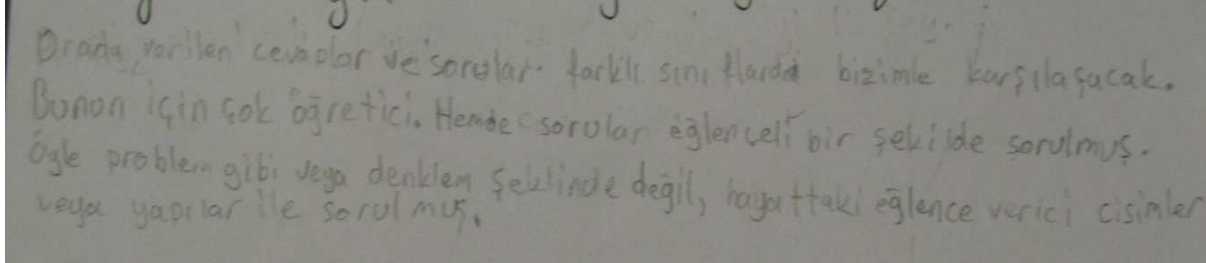 Orada verilen cevaplar ve sorular. farklı sınıflarda bizimle karşılaşacak.
Bunon için çok öğretici. Hemde sorular eğlenceli bir şekilde sorulmuş.
Öyle problem gibi veya denklem şeklinde değil, hayattaki eğlence verici cisimler
veya yapılar ile sorulmuş.